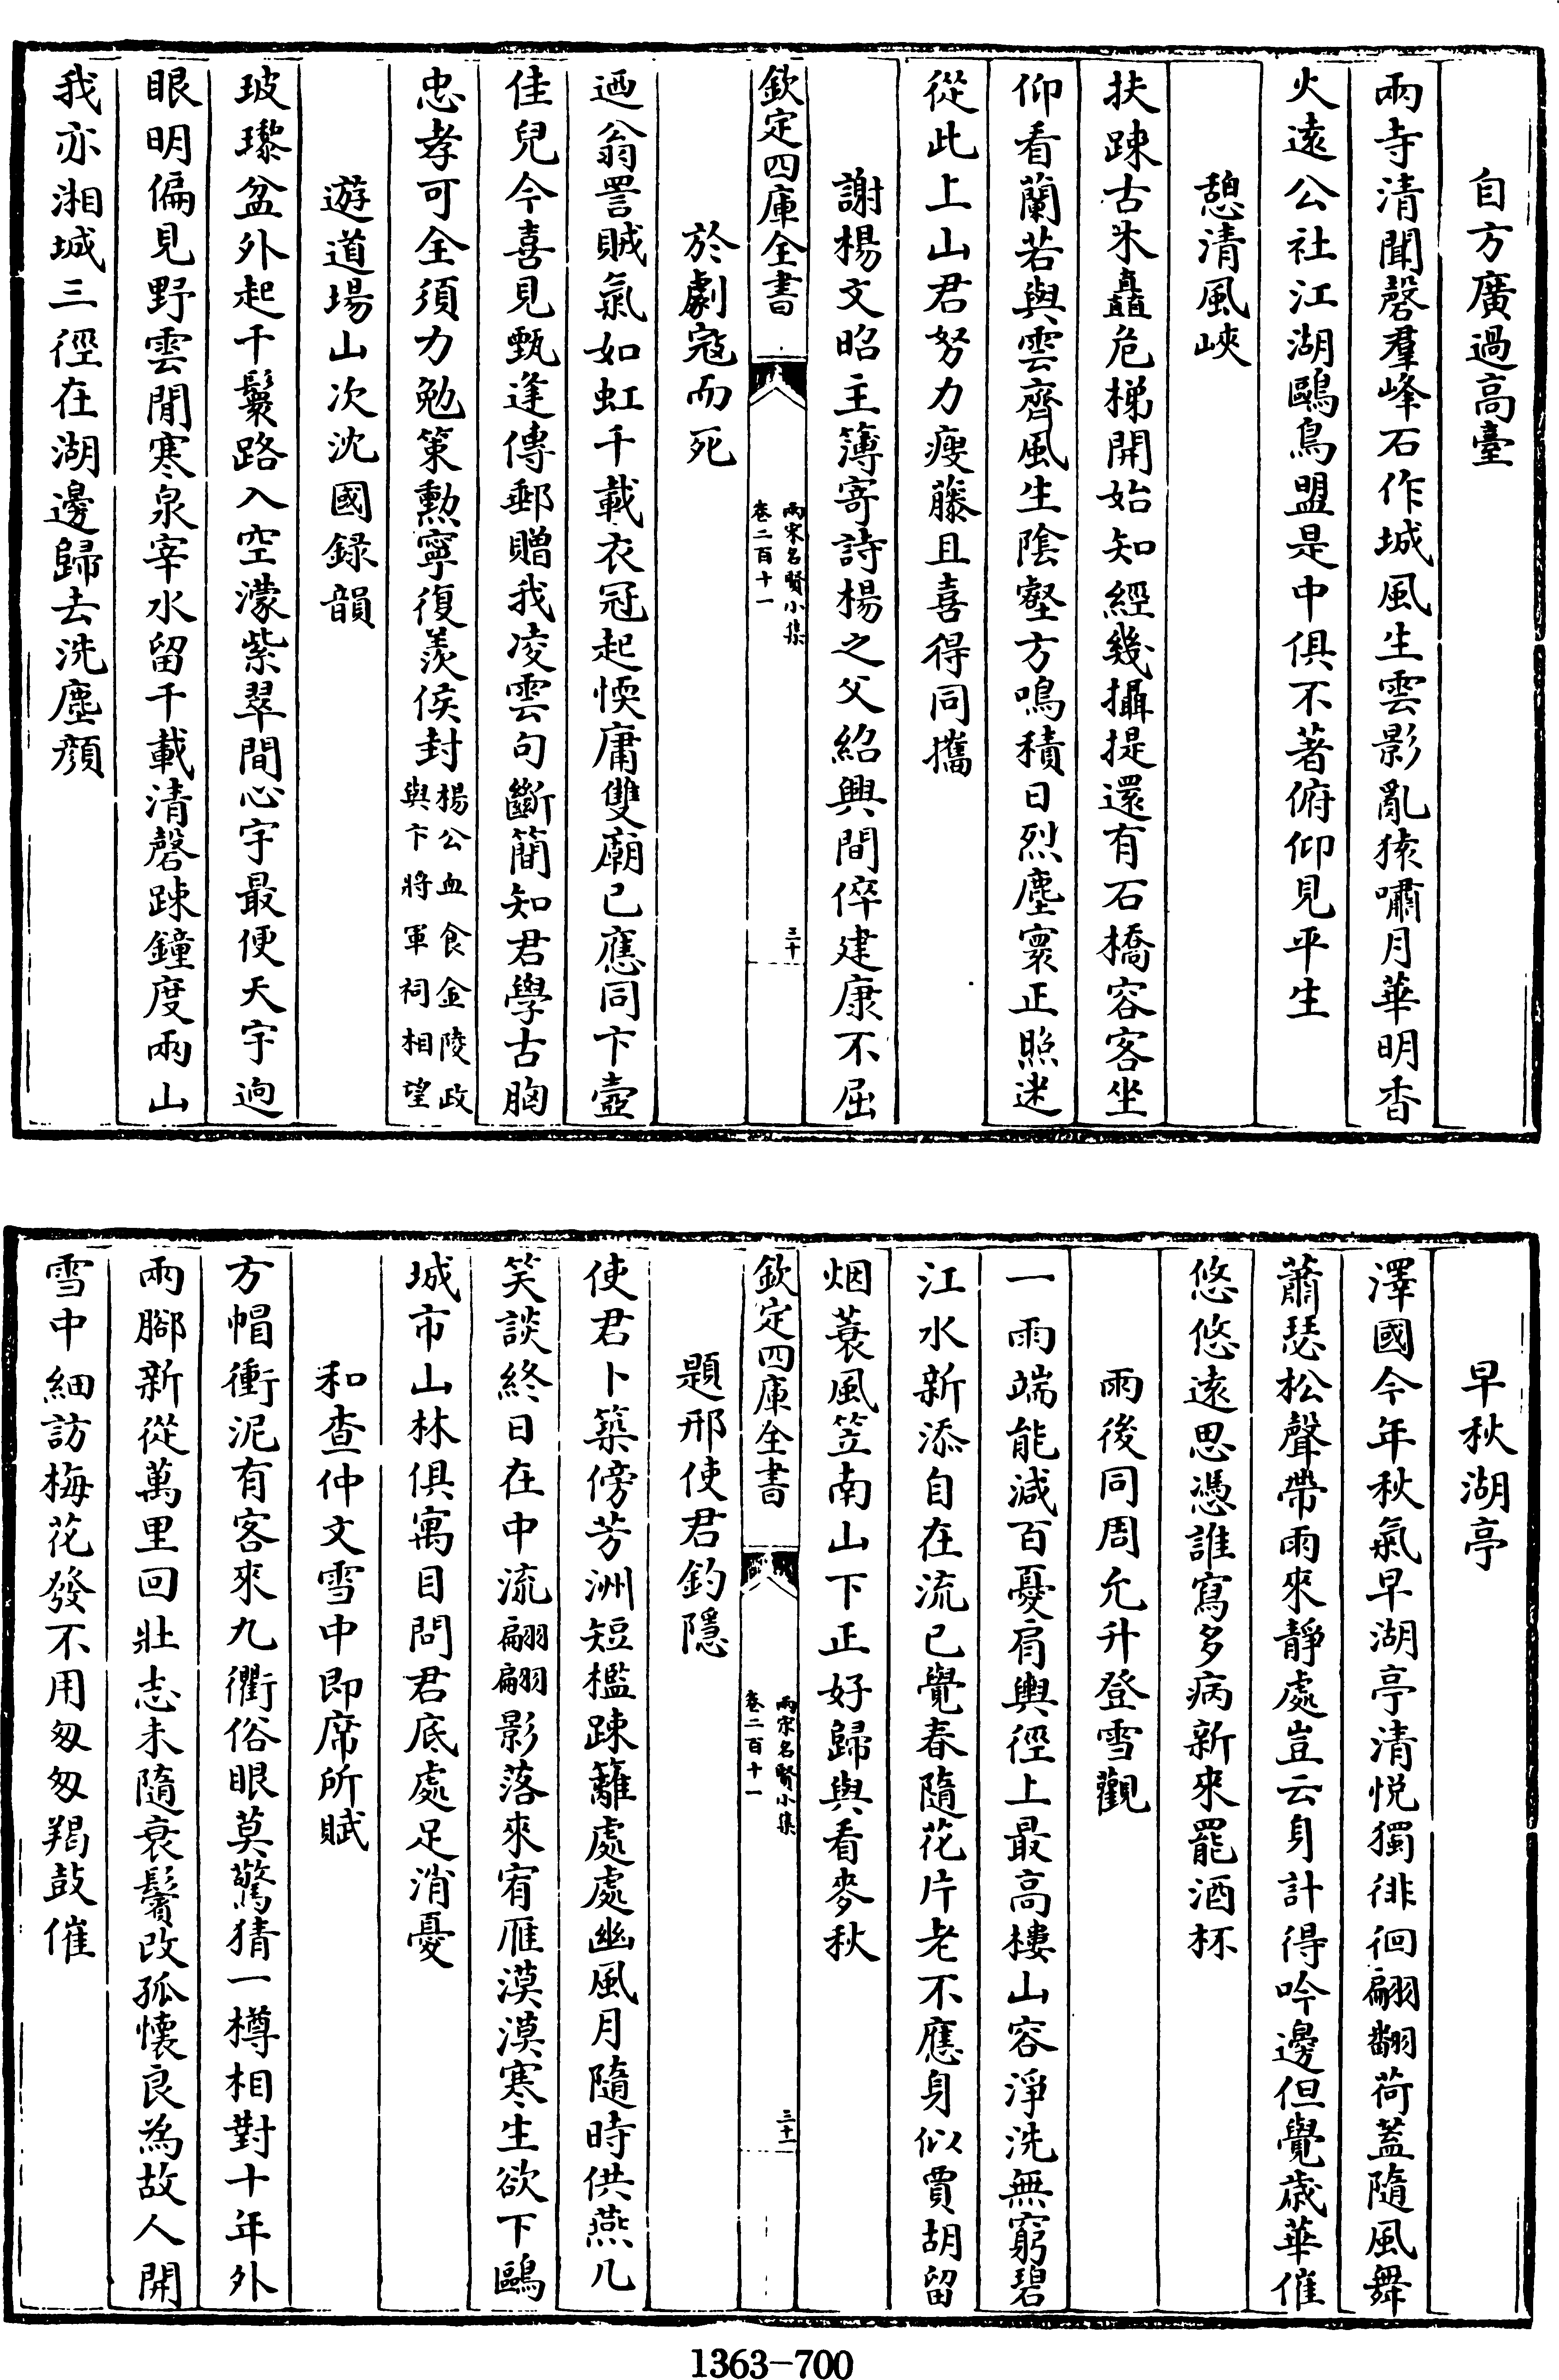 自方廣過高臺
兩寺清聞磬羣峰石作城風生雲影亂猿嘯月華明香
火遠公社江湖鷗鳥盟是中俱不著俯仰見平生
憩清風峽
扶踈古木矗危梯開始知經幾攝提還有石橋容客坐
仰看蘭若與雲齊風生陰壑方鳴積日烈塵寰正照迷
從此上山君努力瘦藤且喜得同攜
謝楊文昭主簿寄詩楊之父紹興間倅建康不屈
欽定四庫全書
兩宋名賢小集
卷二百十一
三十
於劇寇而死
迺翁詈賊氣如虹千載衣冠起愞庸雙廟已應同卞壼
佳兒今喜見甄逢傳郵贈我凌雲句斷簡知君學古胸
忠孝可全須力勉策勲寧復羨侯封楊公血食金陵政
與卞將軍祠相望
遊道場山次沈國録韻
玻瓈盆外起千鬟路入空濛紫翠間心宇最便天宇逈
眼明偏見野雲閒寒泉宰水留千載清磬踈鐘度兩山
我亦湘城三徑在湖邊歸去洗塵顔
早秋湖亭
澤國今年秋氣早湖亭清悦獨徘徊翩翻荷蓋隨風舞
蕭瑟松聲帶雨來靜處豈云身計得吟邊但覺歳華催
悠悠遠思憑誰寫多病新來罷酒杯
雨後同周允升登雪觀
一雨端能減百憂肩輿徑上最高樓山容淨洗無窮碧
江水新添自在流已覺春隨花片老不應身似賈胡留
烟蓑風笠南山下正好歸與看麥秋
欽定四庫全書
兩宋名賢小集
卷二百十一
三十一
題邢使君釣隱
使君卜築傍芳洲短檻踈籬處處幽風月隨時供燕几
笑談終日在中流翩翩影落來宥雁漠漠寒生欲下鷗
城市山林俱寓目問君底處足消憂
和查仲文雪中即席所賦
方帽衝泥有客來九衢俗眼莫驚猜一樽相對十年外
兩腳新從萬里回壯志未隨衰鬢改孤懷良為故人開
雪中細訪梅花發不用匆匆羯鼓催
1363-700